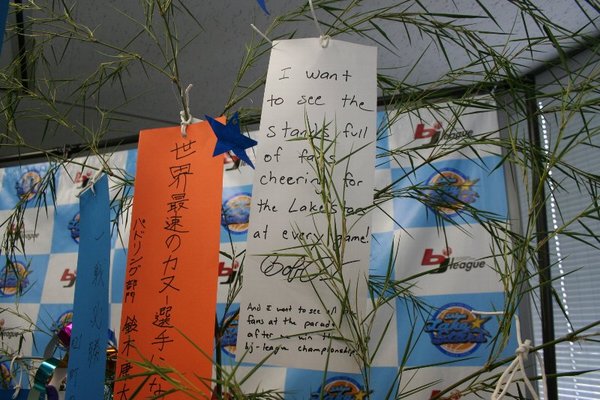 I want
to see the
stands full
of fans
cheering for
the Lakestars
at every game!
And I want to see all
fans at the parade
after we win the
bj-league championship
世界最速のカヌー選手にな
パドリング部門 鈴木康大
一戦必勝
bj league
bj league